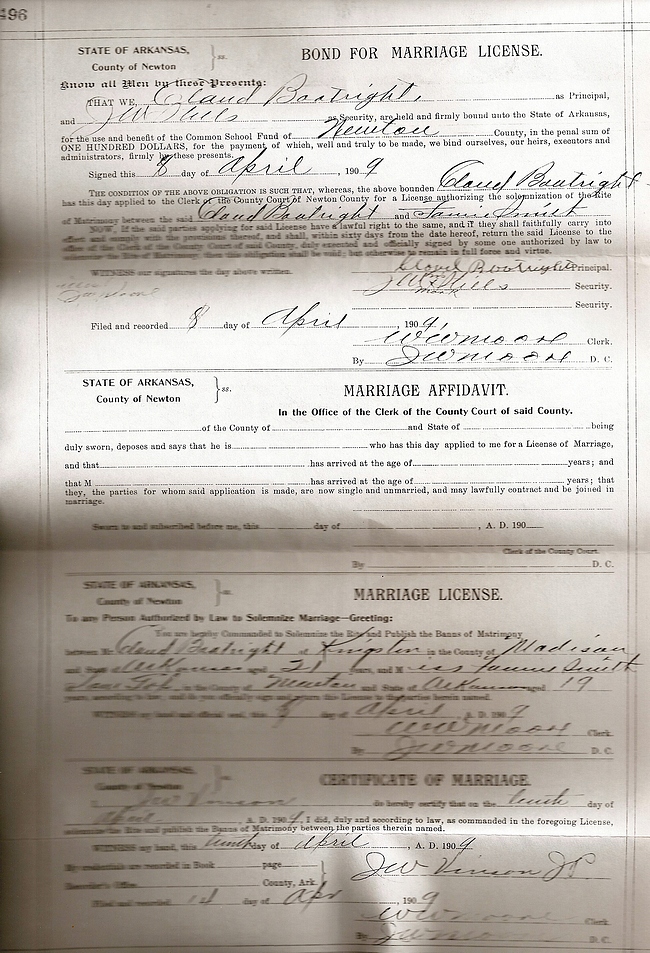 496
STATE OF ARKANSAS,
County of Newton
ss.
BOND FOR MARRIAGE LICENSE.
Know all Men by these Presents:
THAT WE, Claud Boatright, as Principal,
and J W Hills as Security, are held and firmly bound unto the State of Arkansas,
for the use and benefit of the Common School Fund of Newton County, in the penal sum of
ONE HUNDRED DOLLARS, for the payment of which, well and truly to be made, we bind ourselves, our heirs, executors and
administrators, firmly by these presents.
Signed this 8 day of April, 1909
THE CONDITION OF THE ABOVE OBLIGATION IS SUCH, that, whereas, the above bounden Claud Boatright
has this day applied to the Clerk of the County Court of Newton County for a License authorizing the solemnization of the Rite
of Matrimony between the said Claud Boatright and Fannie Smith
NOW, If the said parties applying for said License have a lawful right to the same, and if they shall faithfully carry into
effect and comply with the provisions thereof, and shall, within sixty days from the date hereof, return the said License to the
office of the Clerk of the County Court of said County, duly executed and officially signed by some one authorized by law to
solemnize the Rite of Matrimony, then this obligation shall be void; but otherwise to remain in full force and virtue.
WITNESS our signatures the day above written.
Claud Boatright Principal.
J W Hills Security.
mark
Security.
Filed and recorded 8 day of April, 1909,
W W Moore Clerk.
By J W Moore D. C.
STATE OF ARKANSAS,
County of Newton
ss.
MARRIAGE AFFIDAVIT.
In the Office of the Clerk of the County Court of said County.
of the County of and State of being
duly sworn, deposes and says that he is who has this day applied to me for a License of Marriage,
and that has arrived at the age of years; and
that M has arrived at the age of years; that
they, the parties for whom said application is made, are now single and unmarried, and may lawfully contract and be joined in
marriage.
Sworn to and subscribed before me, this day of , A. D. 190
Clerk of the County Court.
By D. C.
STATE OF ARKANSAS,
County of Newton
ss.
MARRIAGE LICENSE.
To any Person Authorized by Law to Solemnize Marriage—Greeting:
You are hereby Commanded to Solemnize the Rite and Publish the Banns of Matrimony
between Mr Claud Boatright of Kingston in the County of Madison
and State of Arkansas aged 21 years, and Miss Fannie Smith
of in the County of Newton and State of Arkansas aged 19
years, according to law, and do you officially sign and return this License to the parties herein named.
WITNESS my hand and official seal, this 8 day of April, A. D. 1909
W W Moore Clerk.
By J W Moore D. C.
STATE OF ARKANSAS,
County of Newton
ss.
CERTIFICATE OF MARRIAGE.
I, J W Vinson do hereby certify that on the tenth day of
April, A. D. 1909, I did, duly and according to law, as commanded in the foregoing License,
solemnize the Rite and publish the Banns of Matrimony between the parties therein named.
WITNESS my hand, this day of April, A. D. 1909
My credentials are recorded in Book page
Recorder's Office, County, Ark.
J W Vinson J P.
Filed and recorded 14 day of Apr 1909
W W Moore Clerk.
By J W Moore D. C.